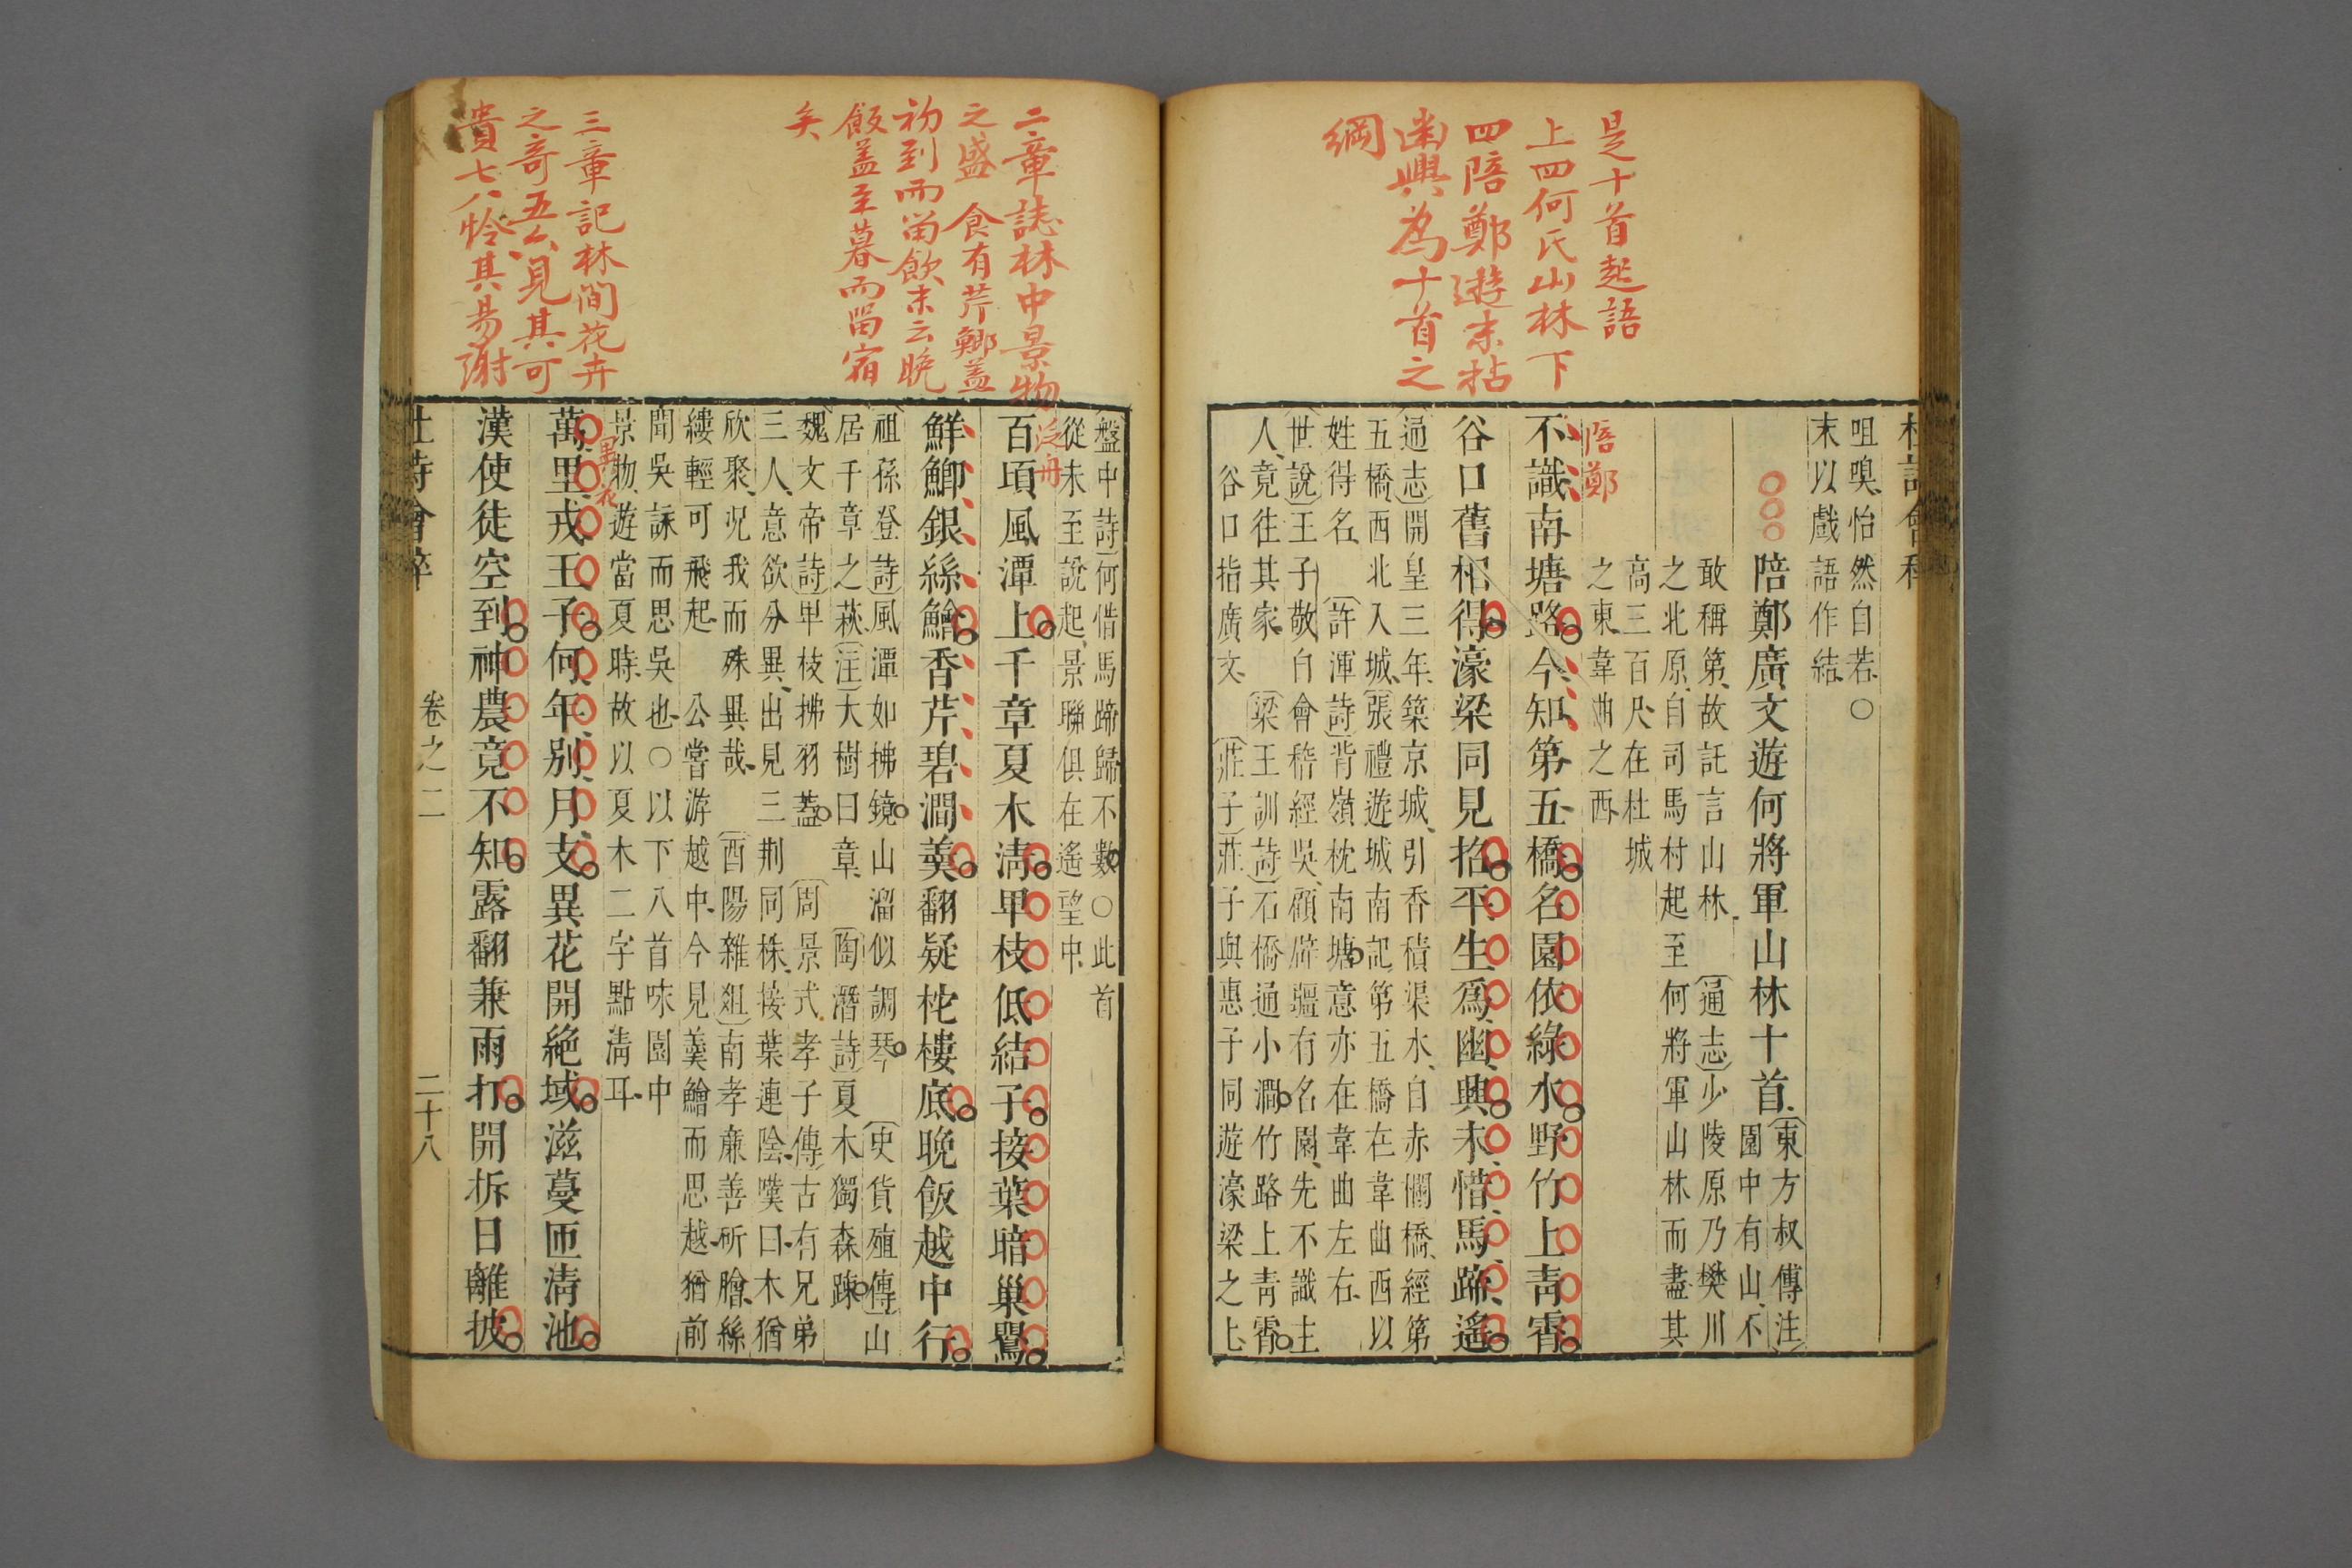 是十首起語
上四何氏山林下
四陪鄭遊末拈
幽興為十首之
綱
咀嗅怡然自若○
末以戲語作結
陪鄭廣文遊何將軍山林十首
東方叔傳注
園中有山不
敢稱第故託言山林
通志少陵原乃樊川
之北原自司馬村起至何將軍山林而盡其
高三百尺在杜城
之東韋曲之西
陪鄭
不識南塘路今知第五橋名園依綠水野竹上青霄
谷口舊相得濠梁同見招平生爲幽興未惜馬蹄遙
通志開皇三年築京城引香積渠水自赤欄橋經第
五橋西北入城張禮遊城南記第五橋在韋曲西以
姓得名 許渾詩背嶺枕南塘意亦在韋曲左右
世說王子敬自會稽經吳顧辟疆有名園先不識主
人竟往其家 梁王訓詩石橋通小澗竹路上青霄
谷口指廣文 莊子莊子與惠子同遊濠梁之上
二章誌林中景物
之盛 食有芹鄉蓋
初到而留飲末云晚
飯蓋至暮而留宿
矣
三章記林間花卉
之奇五六見其可
貴七八怜其易謝
盤中詩何惜馬蹄歸不數○此首
從未至說起景聯俱在遙望中
泛舟
百頃風潭上千章夏木清卑枝低結子接葉暗巢鶯
鮮鯽銀絲鱠香芹碧澗羹翻疑柁樓底晚飯越中行
祖孫登詩風潭如拂鏡山溜似調琴 史貨殖傳山
居千章之萩注大樹曰章 陶潛詩夏木獨森疎
魏文帝詩卑枝拂羽蓋 周景式孝子傳古有兄弟
三人意欲分異出見三荆同株接葉連陰嘆曰木猶
欣聚況我而殊異哉 酉陽雜俎南孝廉善斫膾絲
縷輕可飛起 公嘗游越中今見羹鱠而思越猶前
聞吳詠而思吳也○以下八首咏園中
景物遊當夏時故以夏木二字點清耳
異花
萬里戎王子何年別月支異花開絶域滋蔓匝清池
漢使徒空到神農竟不知露翻兼雨打開拆日離披
卷之二 二十八